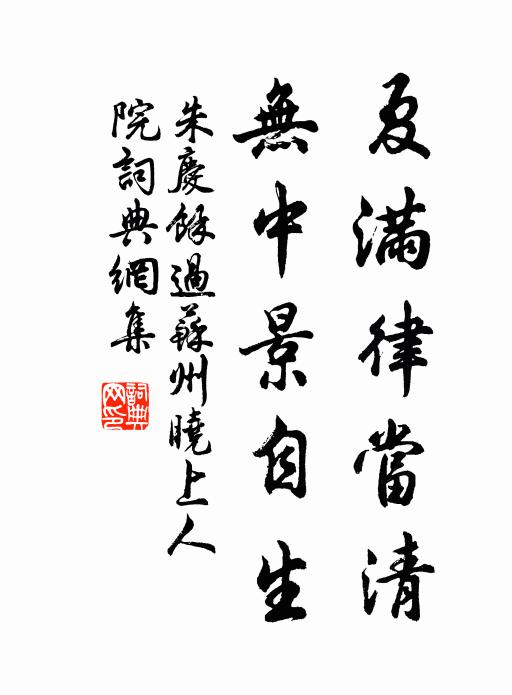 夏滿律當清
無中景自生
朱慶餘過蘇州曉上人
院詞典網集
詞典
网印